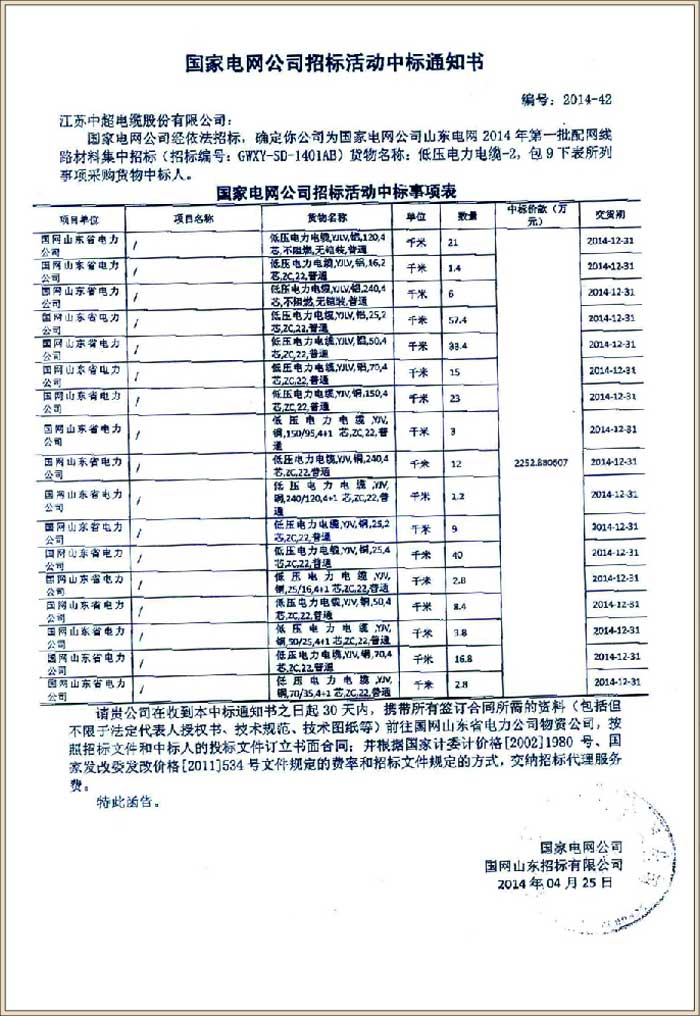 国家电网公司招标活动中标通知书
编号：2014-42
江苏中超电缆股份有限公司：
国家电网公司经依法招标，确定你公司为国家电网公司山东电网 2014 年第一批配网线
路材料集中招标（招标编号：GWXY-SD-1401AB）货物名称：低压电力电缆-2，包 9 下表所列
事项采购货物中标人。
国家电网公司招标活动中标事项表
项目单位 项目名称 货物名称 单位 数量 中标价款（万元） 交货期
国网山东省电力公司 / 低压电力电缆,YJLV,铝,120,4芯,不阻燃,无铠装,普通 千米 21 2014-12-31
国网山东省电力公司 / 低压电力电缆,YJLV,铝,16,2芯,ZC,22,普通 千米 1.4 2014-12-31
国网山东省电力公司 / 低压电力电缆,YJLV,铝,240,4芯,不阻燃,无铠装,普通 千米 6 2014-12-31
国网山东省电力公司 / 低压电力电缆,YJLV,铝,25,2芯,ZC,22,普通 千米 57.4 2014-12-31
国网山东省电力公司 / 低压电力电缆,YJLV,铝,50,4芯,ZC,22,普通 千米 2014-12-31
国网山东省电力公司 / 低压电力电缆,YJLV,铝,70,4芯,ZC,22,普通 千米 15 2014-12-31
国网山东省电力公司 / 低压电力电缆,YJV,铜,150,4芯,ZC,22,普通 千米 23 2014-12-31
国网山东省电力公司 / 低压电力电缆,YJV,铜,150/95,4+1 芯,ZC,22,普通 千米 3 2014-12-31
国网山东省电力公司 / 低压电力电缆,YJV,铜,240,4芯,ZC,22,普通 千米 12 2252.880607 2014-12-31
国网山东省电力公司 / 低压电力电缆,YJV,铜,240/120,4+1 芯,ZC,22,普通 千米 1.2 2014-12-31
国网山东省电力公司 / 低压电力电缆,YJV,铜,25,2芯,ZC,22,普通 千米 9 2014-12-31
国网山东省电力公司 / 低压电力电缆,YJV,铜,25,4芯,ZC,22,普通 千米 40 2014-12-31
国网山东省电力公司 / 低压电力电缆,YJV,铜,25/16,4+1 芯,ZC,22,普通 千米 2.8 2014-12-31
国网山东省电力公司 / 低压电力电缆,YJV,铜,50,4芯,ZC,22,普通 千米 8.4 2014-12-31
国网山东省电力公司 / 低压电力电缆,YJV,铜,50/25,4+1 芯,ZC,22,普通 千米 3.8 2014-12-31
国网山东省电力公司 / 低压电力电缆,YJV,铜,70,4芯,ZC,22,普通 千米 16.8 2014-12-31
国网山东省电力公司 / 低压电力电缆,YJV,铜,70/35,4+1 芯,ZC,22,普通 千米 2.8 2014-12-31
请贵公司在收到本中标通知书之日起 30 天内，携带所有签订合同所需的资料（包括但
不限于法定代表人授权书、技术规范、技术图纸等）前往国网山东省电力公司物资公司，按
照招标文件和中标人的投标文件订立书面合同；并根据国家计委计价格[2002]1980 号、国
家发改委发改价格[2011]534 号文件规定的费率和招标文件规定的方式，交纳招标代理服务
费。
特此函告。
国家电网公司
国网山东招标有限公司
2014 年 04 月 25 日